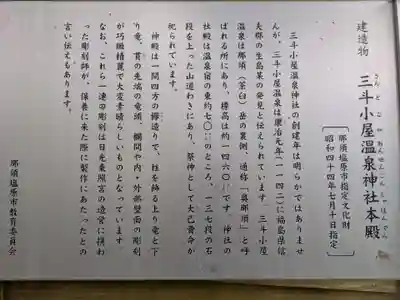 建造物
三斗小屋温泉神社本殿
さんどこやおんせんじんじゃほんでん
那須塩原市指定文化財
昭和四十四年七月十日指定
三斗小屋温泉神社の創建年は明らかではありませ
んが、三斗小屋温泉は康治元年(一一四二)に福島県信
夫郡の生島某の発見と伝えられています。三斗小屋
温泉は那須(茶臼)岳の裏側、通称「奥那須」と呼
ばれる所にあり、標高は約一四六〇mです。神社の
社殿は温泉宿の東約七〇mのところ、一三七段の石
段を上った山道わきにあり、祭神として大己貴命が
祀られています。
神殿は一間四方の欅造りで、柱を飾る上り竜と下
り竜、貫の先端の竜頭、欄間や内・外部壁面の彫刻
が巧緻精麗で大変素晴らしいものとなっています
なお、これら一連の彫刻は日光東照宮の造営に携わ
った彫刻師が、保養に来た際に製作にあたったとの
言い伝えもあります。
那須塩原市教育委員会